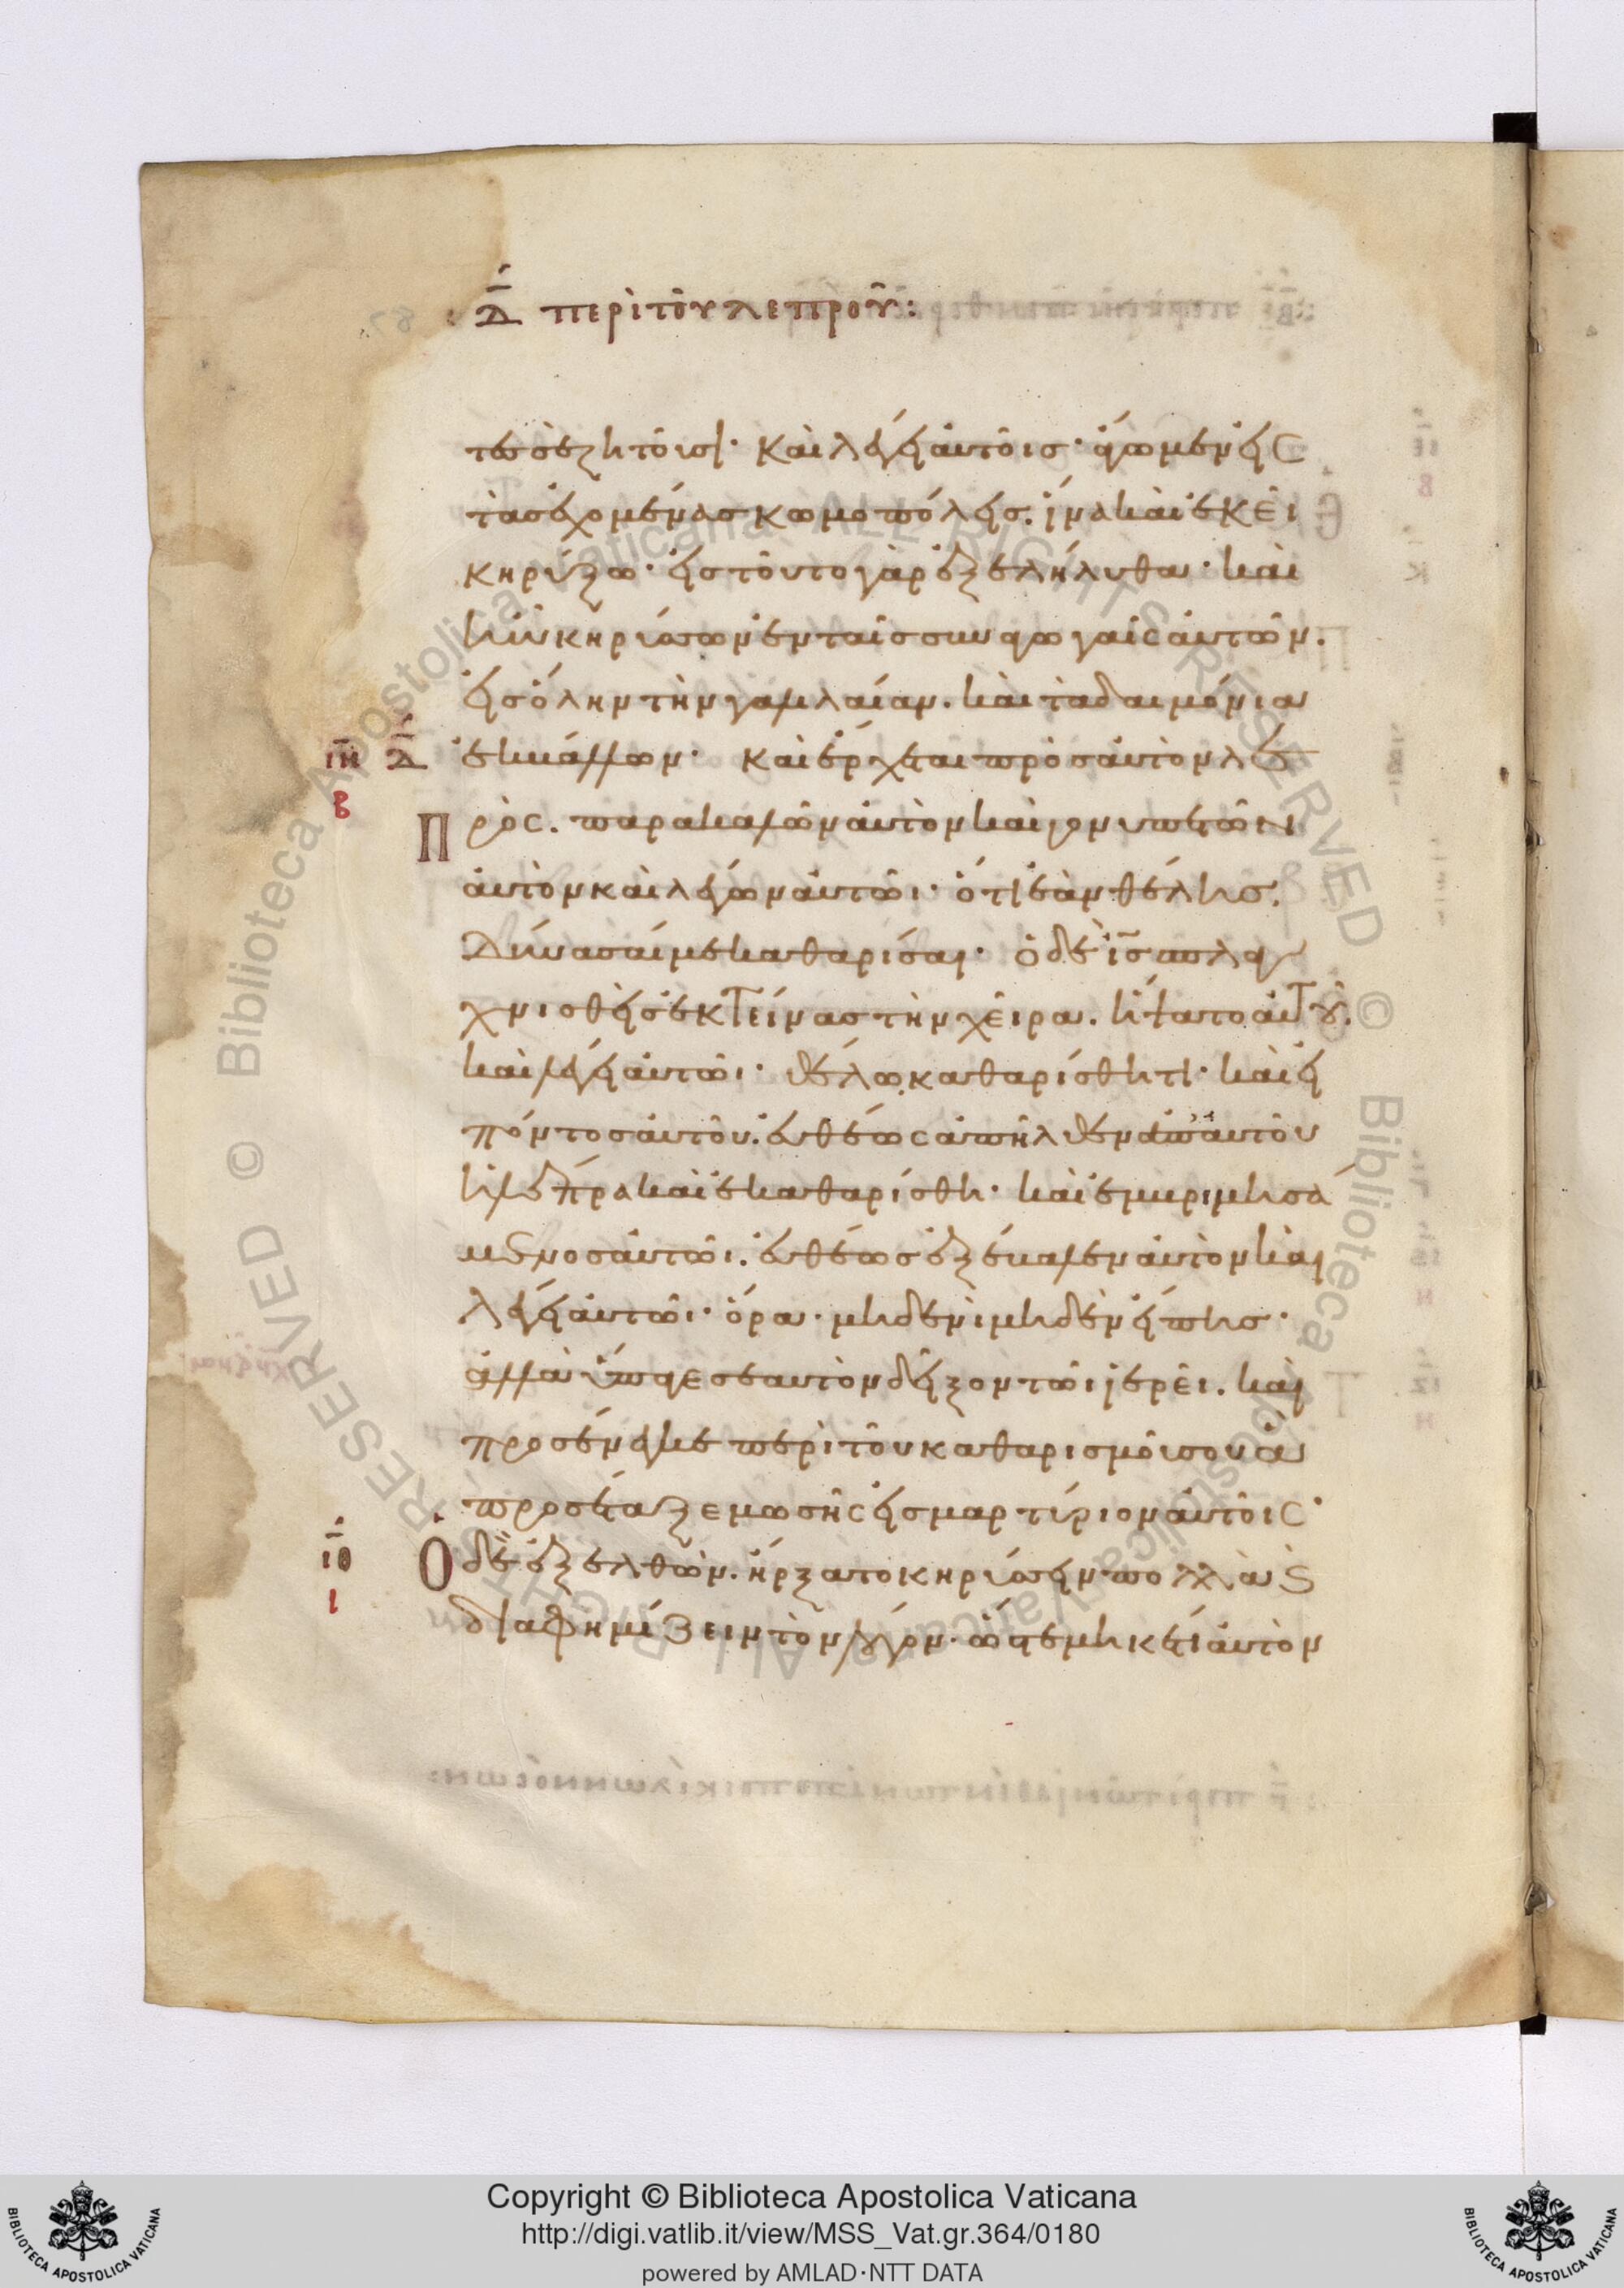 Δ περὶ τοῦ λεπροῦ:
τες σε ζητοῦσι· Καὶ λέγει αὐτοῖς· ἄγωμεν εἰς
τὰς ἐχομένας κωμοπόλεις. ἵνα καὶ ἐκεῖ
κηρύξω· εἰς τοῦτο γὰρ ἐξελήλυθα· καὶ
ἦν κηρύσσων ἐν ταῖς συναγωγαῖς αὐτῶν.
εἰς ὅλην τὴν γαλιλαίαν. καὶ τὰ δαιμόνια
ιη Δ ἐκβάλλων· Καὶ ἔρχεται πρὸς αὐτὸν λε
β
Πρὸς. παρακαλῶν αὐτὸν καὶ γονυπετῶν
αὐτὸν καὶ λέγων αὐτῶι· ὅτι ἐὰν θέλης.
Δύνασαί με καθαρίσαι· ὁ δὲ ις σπλαγ
χνισθεὶς ἐκτείνας τὴν χεῖρα. ἥψατο αὐτοῦ.
καὶ λέγει αὐτῶι· θέλω καθαρίσθητι· καὶ εἰ
πόντος αὐτοῦ. εὐθέως ἀπῆλθεν ἀπ' αὐτοῦ
ἡ λέπρα καὶ ἐκαθαρίσθη· καὶ ἐμβριμησά
μενος αὐτῶι. εὐθέως ἐξέβαλεν αὐτὸν καὶ
λέγει αὐτῶι· ὅρα· μηδενὶ μηδὲν εἴπης·
ἀλλὰ ὕπαγε σεαυτὸν δεῖξον τῶι ἱερεῖ. καὶ
προσένεγκε περὶ τοῦ καθαρισμοῦ σου ἃ
προσέταξε μωσῆς εἰς μαρτύριον αὐτοῖς·
ιθ Ὁ δὲ ἐξελθὼν. ἤρξατο κηρύσσειν πολλὰ ϗ
ι
διαφημίζειν τὸν λόγον· ὥστε μηκέτι αὐτὸν
Copyright © Biblioteca Apostolica Vaticana
http://digi.vatlib.it/view/MSS_Vat.gr.364/0180
powered by AMLAD·NTT DATA